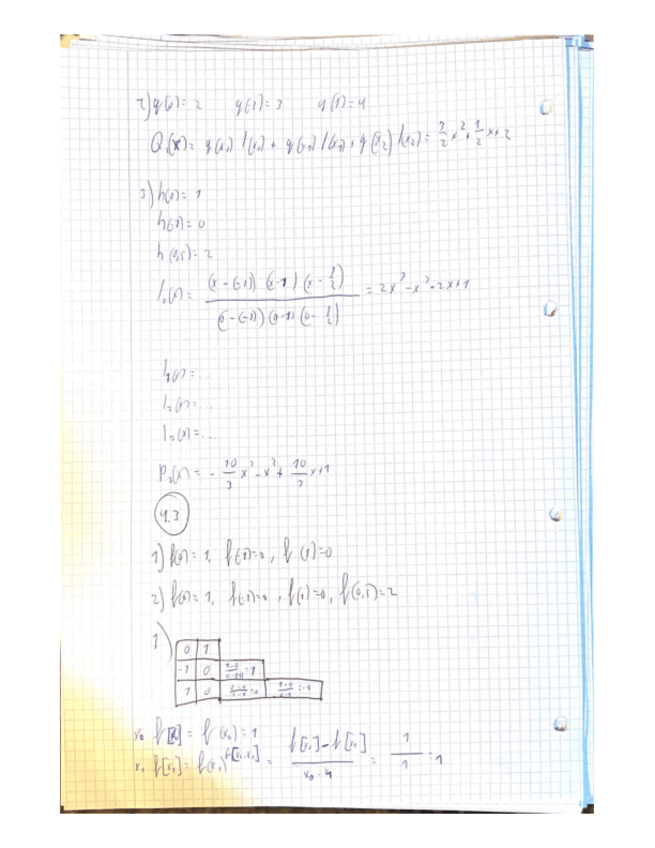 2) g(0) = 2   g(-1) = 3   g(1) = 4
Q₂(x) = g(x₀) l(x₀) + g(x₁) l(x₁) + g(x₂) l(x₂) = 3/2 x² + 1/2 x + 2
3) h(0) = 1
h(-1) = 0
h(0,5) = 2
l₀(x) = (x - (-1)) (x - 1) (x - 1/2) / (0 - (-1)) (0 - 1) (0 - 1/2) = 2x³ - x² - 2x + 1
l₁(x) = ...
l₂(x) = ...
l₃(x) = ...
P₃(x) = - 10/3 x³ - x² + 10/3 x + 1
4.3
1) f(0) = 1, f(-1) = 0, f(1) = 0
2) f(0) = 1, f(-1) = 0, f(1) = 0, f(0,5) = 2
1)
0 1
-1 0 = 1
1 0 = 0 = -1
x₀ f[x₀] = f(x₀) = 1
x₁ f[x₁] = f(x₁) f[x₀,x₁] = f[x₀] - f[x₁] / x₀ - x₁ = 1/1 = 1